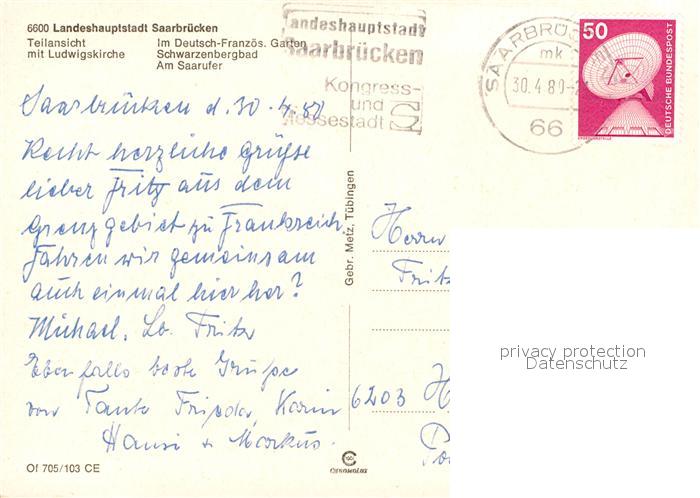 6600 Landeshauptstadt Saarbrücken
Teilansicht
mit Ludwigskirche
Im Deutsch-Französ. Garten
Schwarzenbergbad
Am Saarufer
Landeshauptstadt
Saarbrücken
Kongress-
und
Messestadt
SAARBRÜC
mk
30.4.80
66
50
DEUTSCHE BUNDESPOST
Saarbrücken d. 30.4.80
Recht herzliche Grüße
lieber Fritz aus dem
Grenzgebiet zu Frankreich
Fahren wir gemeinsam
auch einmal hier her?
Michael. Lb. Fritz
Ebenfalls beste Grüße
von Tante Frieda, Karin
Hansi + Markus.
Gebr. Metz, Tübingen
Herrn
Fritz
6203 H
privacy protection
Datenschutz
Of 705/103 CE